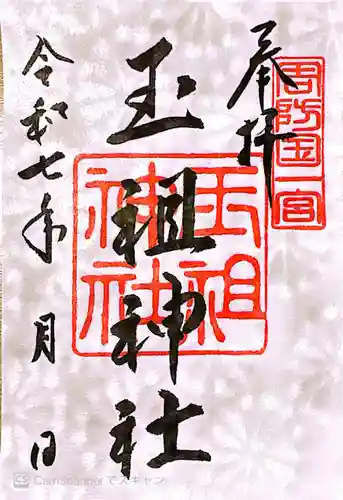 奉拝
周防国一宮
玉祖神社
玉祖
神社
令和七年 月 日
CamScannerでスキャン